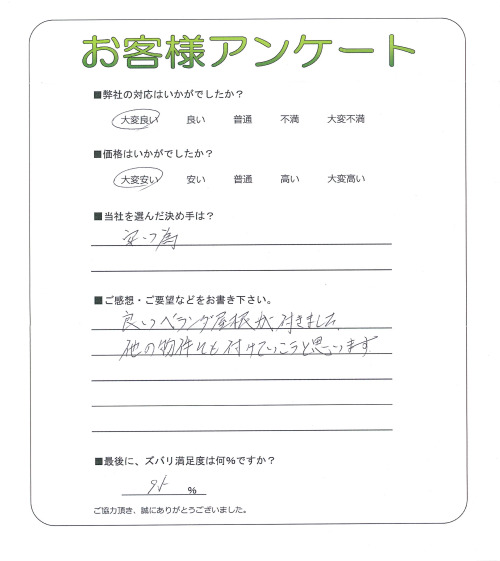 お客様アンケート
■弊社の対応はいかがでしたか？
大変良い 良い 普通 不満 大変不満
■価格はいかがでしたか？
大変安い 安い 普通 高い 大変高い
■当社を選んだ決め手は？
安い為
■ご感想・ご要望などをお書き下さい。
良いベランダ屋根が付きました
他の物件にも付けていこうと思います
■最後に、ズバリ満足度は何％ですか？
％
ご協力頂き、誠にありがとうございました。